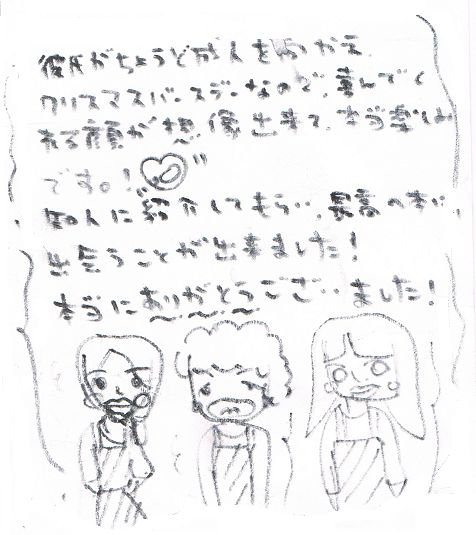 彼氏がちょうど
クリスマスバースデーなので、喜んでく
れる顔が想像出来て、本当楽しみ
です。!
知人に紹介してもらい、最高の
出会うことが出来ました!
本当にありがとうございました!